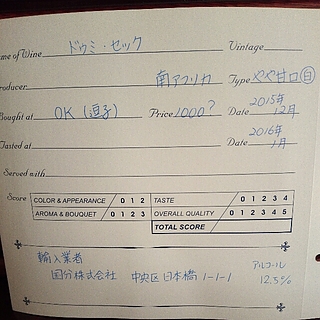 Name of Wine ドゥミ・セック Vintage
Producer 南アフリカ Type やや甘口(白)
Bought at OK(逗子) Price 1000? Date 2015年12月
Tasted at Date 2016年1月
Served with
Score COLOR & APPEARANCE / 0 1 2 TASTE / 0 1 2 3 4
AROMA & BOUQUET / 0 1 2 3 OVERALL QUALITY / 0 1 2 3 4 5
TOTAL SCORE
輸入業者 アルコール
国分株式会社 中央区日本橋1-1-1 12.5%